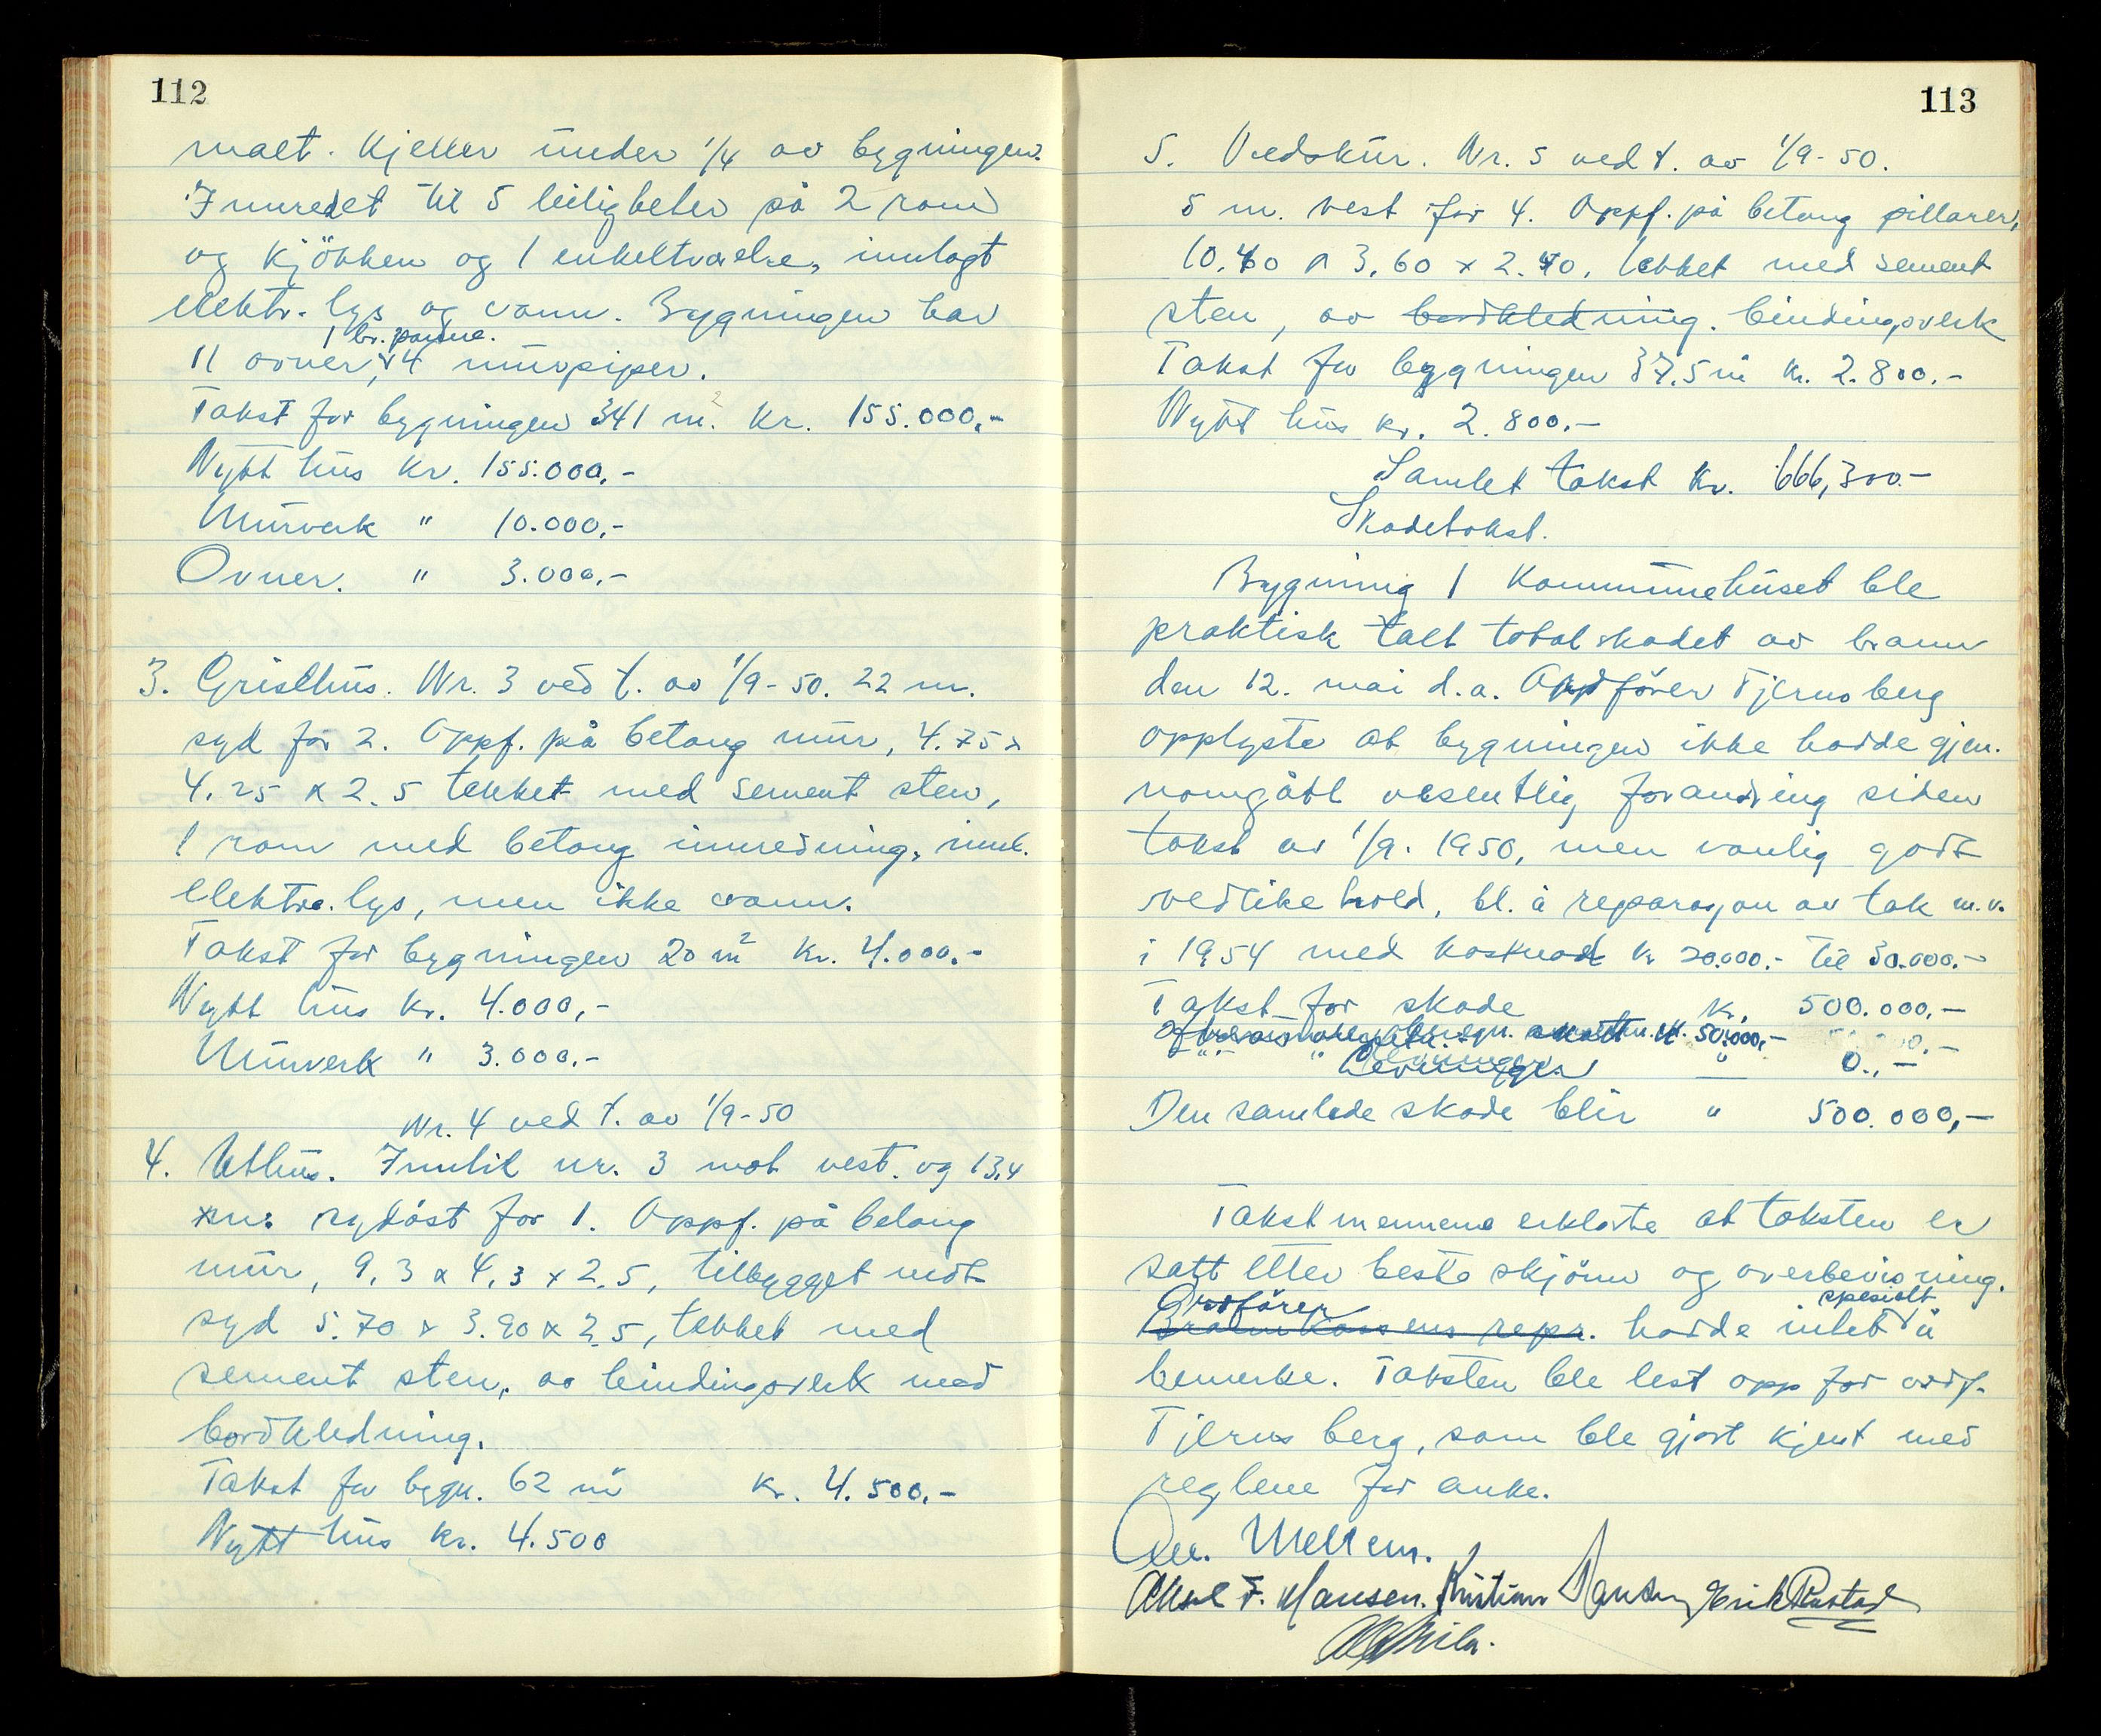 112
malt. Kjeller under 1/4 av bygningen.
Innredet til 5 leiligheter på 2 rom
og kjökken og 1 enkeltværelse, innlagt
elektr. lys og vann. Bygningen har
1 br. panne.
11 ovner, & 4 murpiper.
Takst for bygningen 341 m². Kr. 155.000,-
Nytt hus Kr. 155.000,-
Murverk " 10.000,-
Ovner. " 3.000,-
3. Grisehus. Nr. 3 ved t. av 1/9-50. 22 m.
syd for 2. Oppf. på betong mur, 4.75 x
4.25 x 2.5 tekket med sement sten,
1 rom med betong innredning, innl.
elektr. lys, men ikke vann.
Takst for bygningen 20 m² Kr. 4.000.-
Nytt hus Kr. 4.000,-
Murverk " 3.000,-
Nr. 4 ved t. av 1/9-50
4. Uthus. Inntil nr. 3 mot vest. og 13,4
m. sydöst for 1. Oppf. på betong
mur, 9,3 x 4,3 x 2.5, tilbygget mot
syd 5.70 x 3.90 x 2.5, tekket med
sement sten, av bindingsverk med
bordkledning.
Takst for bygn. 62 m² Kr. 4.500.-
Nytt hus Kr. 4.500
113
5. Vedskur. Nr. 5 ved t. av 1/9-50.
5 m. vest for 4. Oppf. på betong pillarer,
10.40 x 3.60 x 2.40. tekket med sement
sten, av bordkledning. bindingsverk
Takst for bygningen 37.5 m² Kr. 2.800.-
Nytt hus Kr. 2.800.-
Samlet takst Kr. 666,300.-
Skadetakst.
Bygning 1 Kommunehuset ble
praktisk talt totalskadet av brann
den 12. mai d.a. Ordförer Tjernsberg
opplyste at bygningen ikke hadde gjen-
nomgått vesentlig forandring siden
takst av 1/9. 1950, men vanlig godt
vedlikehold, bl. a reparasjon av tak m.v.
i 1954 med kostnad kr 20.000.- til 30.000.-
Takst for skade Kr. 500.000,-
50.000,-
" " 0.,-
Den samlede skade blir " 500.000,-
Takstmennene erklærte at taksten er
satt etter beste skjönn og overbevisning.
Ordförer spesielt
Brannkassens repr. hadde intet å
bemerke. Taksten ble lest opp for ordf.
Tjernsberg, som ble gjort kjent med
reglene for anke.
Mellem.
Aksel F. Hansen. Kristian Hansen Erik Rustad